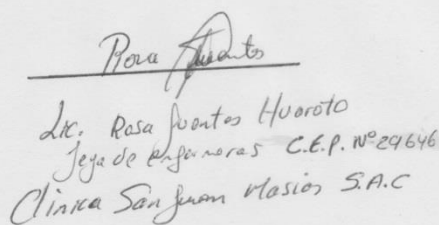 Rosa Fuentes
Lic. Rosa Fuentes Huaroto
Jefa de enfermeras C.E.P. Nº 29646
Clinica San Juan Masias S.A.C